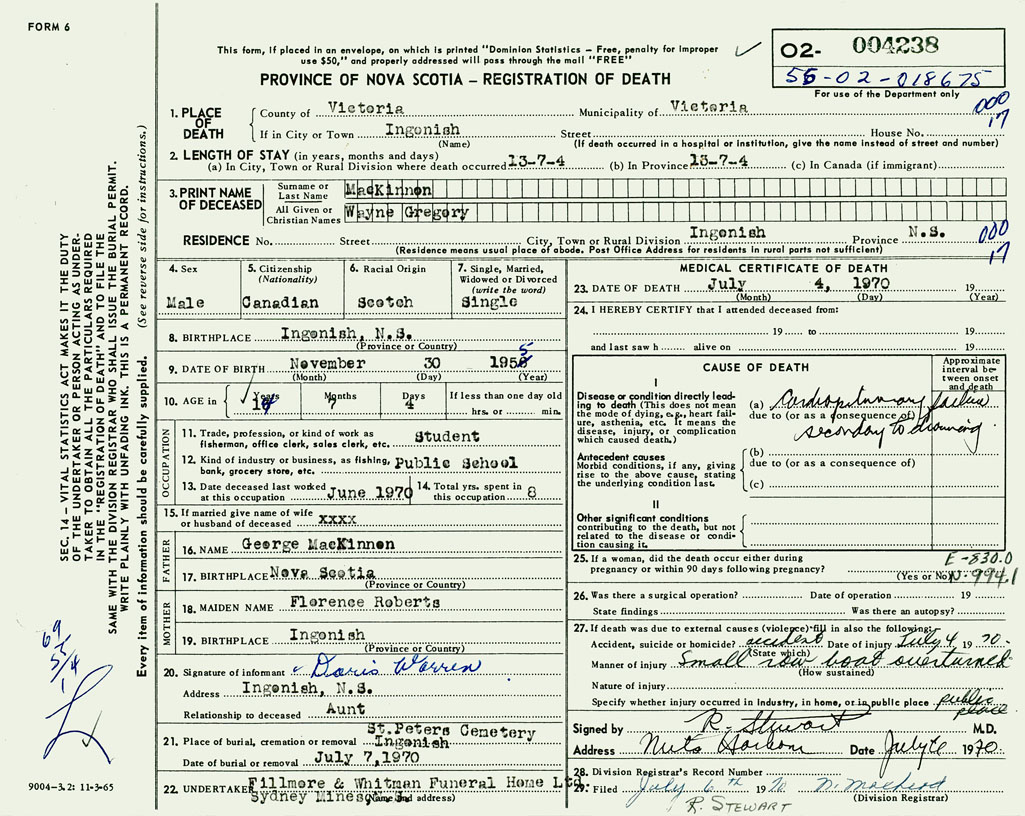 FORM 6
This form, if placed in an envelope, on which is printed "Dominion Statistics – Free, penalty for improper
use $50," and properly addressed will pass through the mail "FREE"
PROVINCE OF NOVA SCOTIA – REGISTRATION OF DEATH
02- 004238
55-02-018675
For use of the Department only
000
17
1. PLACE OF DEATH
County of Victoria Municipality of Victoria
If in City or Town Ingonish Street House No.
(Name) (If death occurred in a hospital or institution, give the name instead of street and number)
2. LENGTH OF STAY (in years, months and days)
(a) In City, Town or Rural Division where death occurred 13-7-4 (b) In Province 13-7-4 (c) In Canada (if immigrant)
3. PRINT NAME OF DECEASED
Surname or Last Name MacKinnon
All Given or Christian Names Wayne Gregory
RESIDENCE No. Street City, Town or Rural Division Ingonish Province N.S.
(Residence means usual place of abode. Post Office Address for residents in rural parts not sufficient)
000
17
4. Sex
Male
5. Citizenship
(Nationality)
Canadian
6. Racial Origin
Scotch
7. Single, Married,
Widowed or Divorced
(write the word)
Single
8. BIRTHPLACE Ingonish, N.S.
(Province or Country)
9. DATE OF BIRTH November 30 1955
(Month) (Day) (Year)
10. AGE in Years Months Days If less than one day old
14 7 4 hrs. or min.
OCCUPATION
11. Trade, profession, or kind of work as Student
fisherman, office clerk, sales clerk, etc.
12. Kind of industry or business, as fishing, Public School
bank, grocery store, etc.
13. Date deceased last worked
at this occupation June 1970
14. Total yrs. spent in
this occupation 8
15. If married give name of wife
or husband of deceased xxxx
FATHER
16. NAME George MacKinnon
17. BIRTHPLACE Nova Scotia
(Province or Country)
MOTHER
18. MAIDEN NAME Florence Roberts
19. BIRTHPLACE Ingonish
(Province or Country)
20. Signature of informant Doris Warren
Address Ingonish, N.S.
Relationship to deceased Aunt
St.Peters Cemetery
21. Place of burial, cremation or removal Ingonish
Date of burial or removal July 7,1970
22. UNDERTAKER Fillmore & Whitman Funeral Home Ltd.
Sydney Mines, N.S.
(Name and address)
MEDICAL CERTIFICATE OF DEATH
23. DATE OF DEATH July 4, 1970 19
(Month) (Day) (Year)
24. I HEREBY CERTIFY that I attended deceased from:
19 to 19
and last saw h alive on 19
CAUSE OF DEATH
Approximate
interval be-
tween onset
and death
I
Disease or condition directly lead-
ing to death (This does not mean
the mode of dying, e.g., heart fail-
ure, asthenia, etc. It means the
disease, injury, or complication
which caused death.)
(a) Cardiopulmonary failure
due to (or as a consequence of)
secondary to drowning
Antecedent causes
Morbid conditions, if any, giving
rise to the above cause, stating
the underlying condition last.
(b)
due to (or as a consequence of)
(c)
II
Other significant conditions
contributing to the death, but not
related to the disease or condi-
tion causing it.
25. If a woman, did the death occur either during
pregnancy or within 90 days following pregnancy?
(Yes or No)
E-830.0
N-994.1
26. Was there a surgical operation? Date of operation 19
State findings Was there an autopsy?
27. If death was due to external causes (violence) fill in also the following:
Accident, suicide or homicide? accident Date of injury July 4 1970
(State which)
Manner of injury Small row boat overturned
(How sustained)
Nature of injury
Specify whether injury occurred in Industry, in home, or in public place public place
Signed by R. Stewart M.D.
Address Neils Harbour Date July 6 1970
28. Division Registrar's Record Number
29. Filed July 6th 1970
(Division Registrar)
R. STEWART
SEC. 14 – VITAL STATISTICS ACT MAKES IT THE DUTY
OF THE UNDERTAKER OR PERSON ACTING AS UNDER-
TAKER TO OBTAIN ALL THE PARTICULARS REQUIRED
IN THE "REGISTRATION OF DEATH" AND TO FILE THE
SAME WITH THE DIVISION REGISTRAR WHO SHALL ISSUE THE BURIAL PERMIT.
WRITE PLAINLY WITH UNFADING INK. THIS IS A PERMANENT RECORD.
Every item of information should be carefully supplied. (See reverse side for instructions.)
9004-3.2: 11-3-65